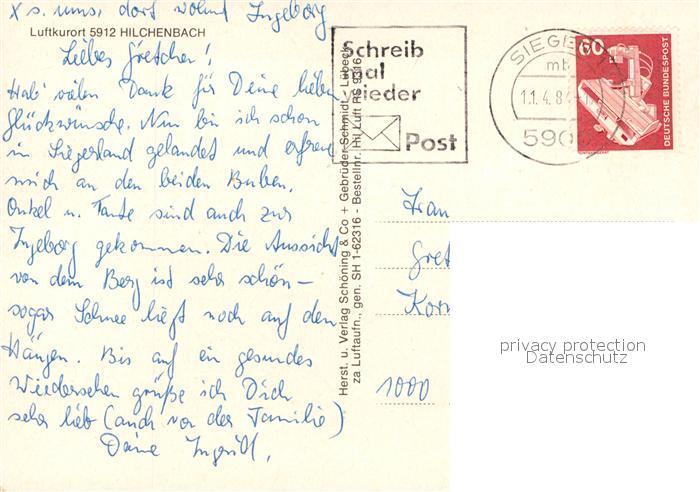 x s. uns, dort wohnt Ingeborg
Luftkurort 5912 HILCHENBACH
Liebes Gretchen!
Hab' vielen Dank für Deine lieben
Glückwünsche. Nun bin ich schon
in Siegerland gelandet und erfreue
mich an den beiden Buben.
Onkel u. Tante sind auch zur
Ingeborg gekommen. Die Aussicht
von dem Berg ist sehr schön –
sogar Schnee liegt noch auf den
Hängen. Bis auf ein gesundes
Wiedersehen grüße ich Dich
sehr lieb (auch von der Familie)
Deine
Herst. u. Verlag Schöning & Co + Gebrüder Schmidt - Lübeck
za Luftaufn., gen. SH 1-62316 - Bestellnr. Hil Luft RS 9316
Schreib
mal
wieder
Post
SIEGE
mb
11.4.8
590
60
DEUTSCHE BUNDESPOST
Frau
Gret
Korn
1000
privacy protection
Datenschutz